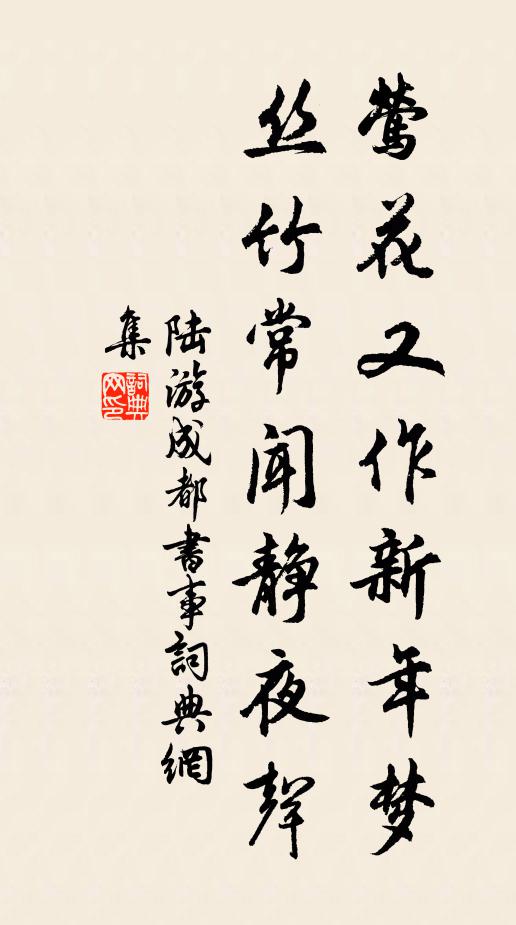 莺花又作新年梦
丝竹常闻静夜声
陆游成都书事詞典網
集
詞典
网印